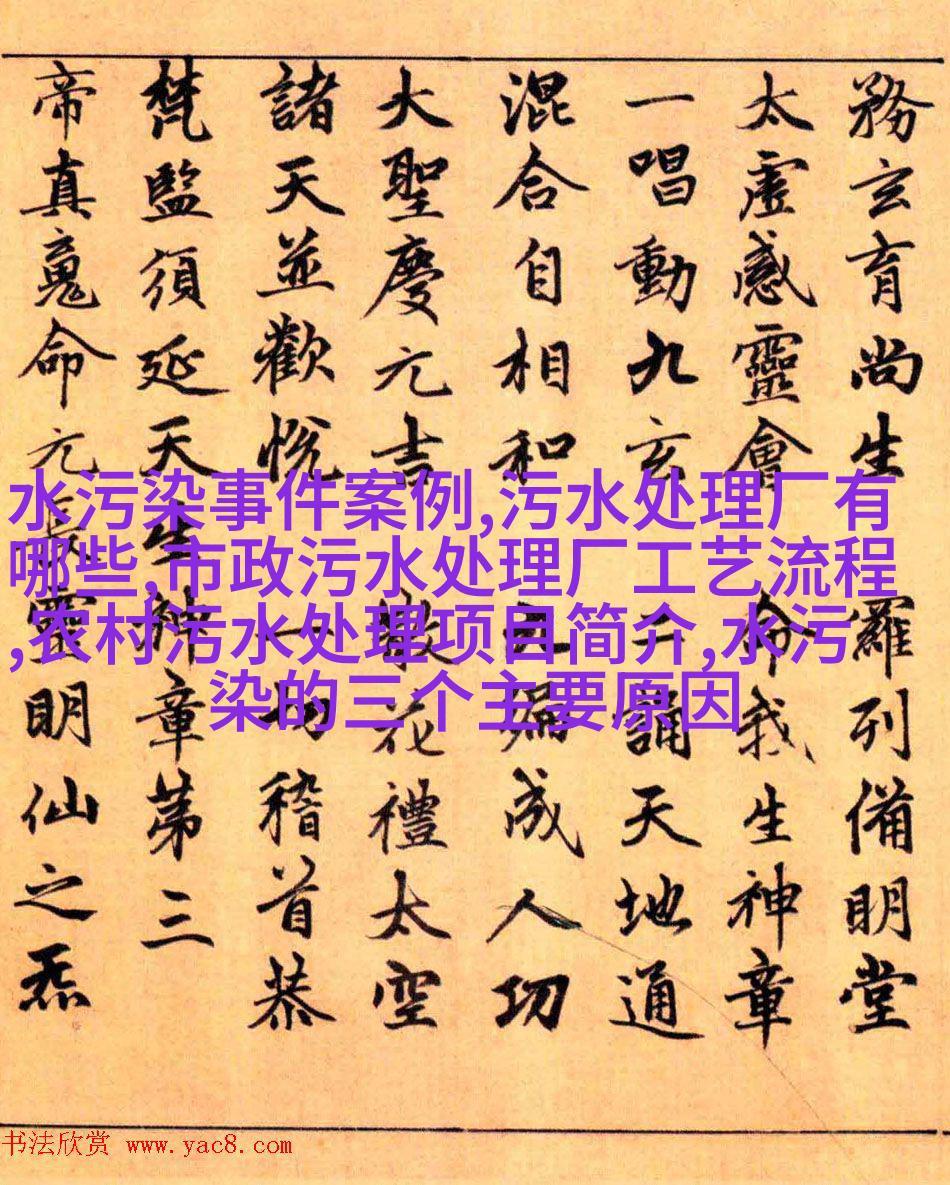 務玄育尚生 羅列備明堂
太虛感靈會 命我生神章
一唱動九玄 二誦天地通
混合自相和 九遍成人功
大聖慶元吉 散花禮太空
諸天並歡悅 一切稽首恭
梵監須延天生神章第三
帝真魄命元長靈明仙之炁
水污染事件案例,污水处理厂有
哪些,市政污水处理厂工艺流程
,农村污水处理项目简介,水污
染的三个主要原因
书法欣赏 www.yac8.com